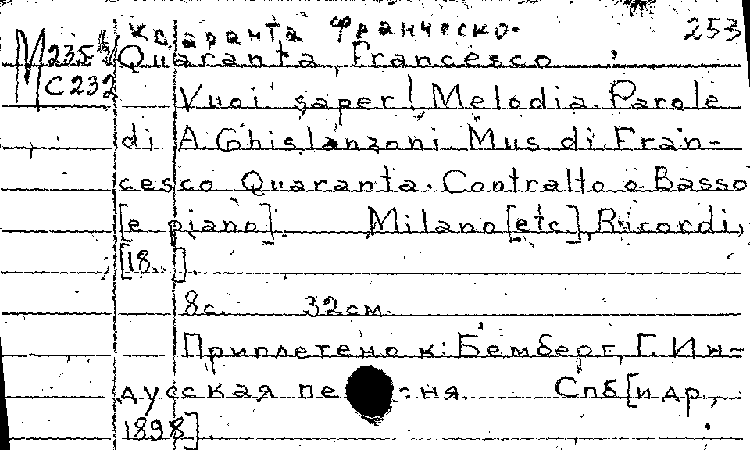 Кваранта Франческо. 253
М 235 4/С 232 Quaranta, Francesco
Vuoi saper! Melodia. Parole
di A. Ghislanzoni Mus. di Fran-
cesco Quaranta. Contralto o Basso
[e piano]. Milano [etc], Ricordi,
[18..].
8с. 32см.
Приплетено к: Бемберг, Г. Ин-
дусская песня. Спб [и др.,
1898]